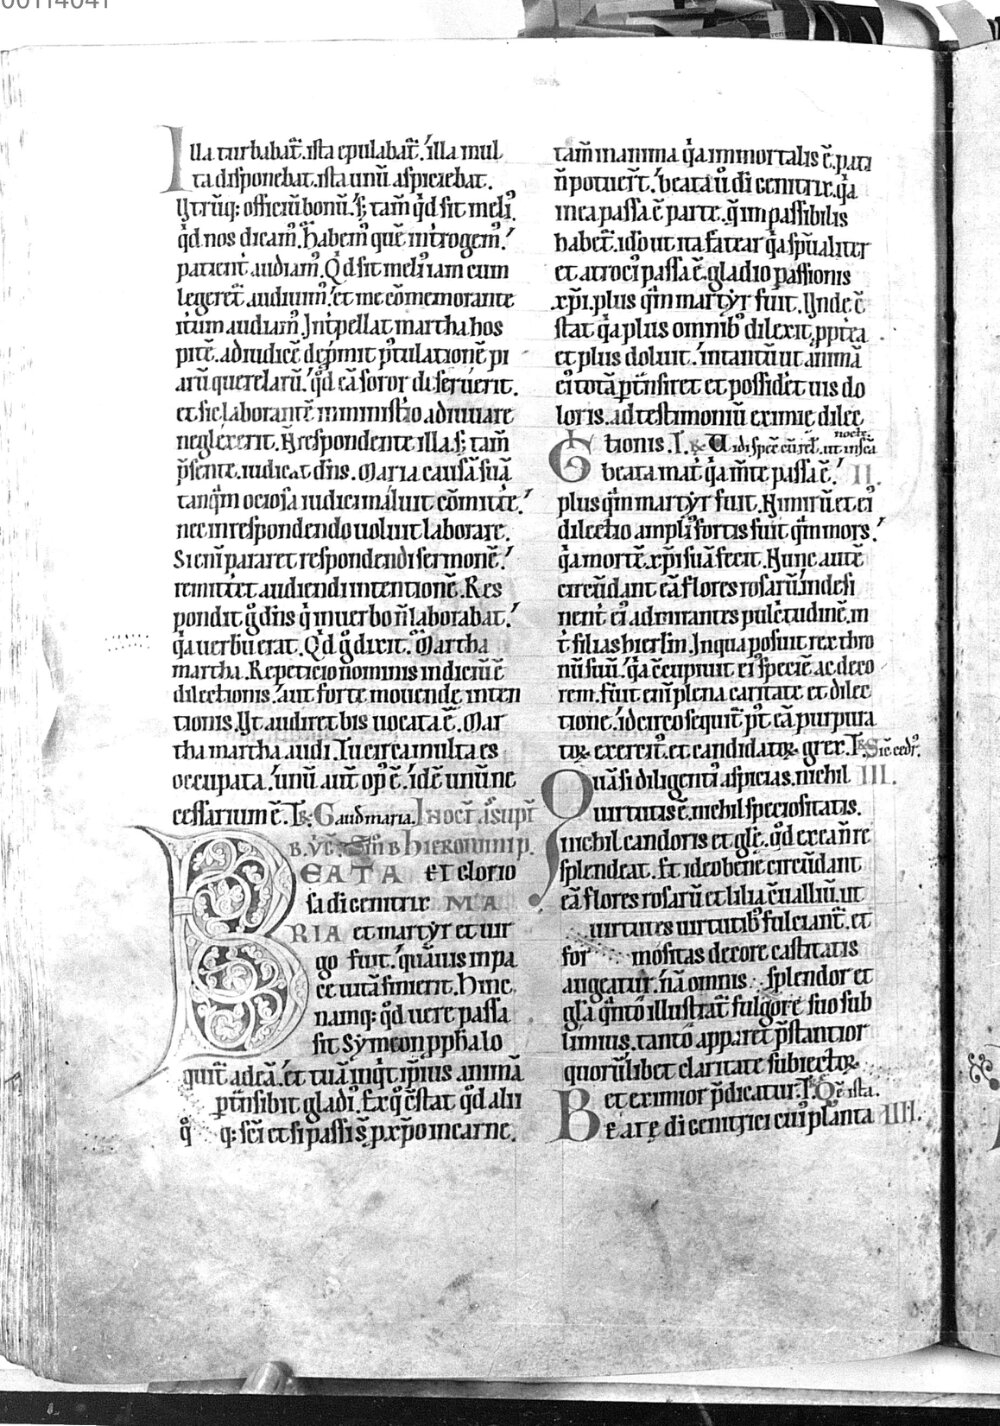 00114041
Illa turbabat̃. ista epulabat̃. illa mul
ta disponebat. ista unũ aspiciebat.
Ytrũq: officiũ bonũ. s; tam̃ q̇d sit meli᷒.
q̇d nos dicam᷒. Habem᷒ quẽ int̃rogem᷒.
patient̃ audiam᷒. Q̇d sit meli᷒ iam cum
legeret̃ audiuim᷒. et me cõmemorante
itum audiam᷒. Int̃pellat martha hos
pitẽ. ad iudicẽ dep̃mit p̃tulationẽ pi
arũ querelarũ. q̇d eã soror deseruerit.
et sic laborantẽ in ministrio adiuuare
neglexerit. Ñ respondente illa. s; tam̃
p̃sente. iudicat dñs. Maria causã suã
tanq̃m ociosa iudici maluit cõmittẽ.
nec in respondendo uoluit laborare.
Si eni pararet respondendi sermonẽ.
remittẽt audiendi intentionẽ. Res
pondit g̊ dñs q̇ in uerbo ñ laborabat.
q̇a uerbũ erat. Q̇d g̊ dixit. Martha
martha. Repeticio nominis indiciũ ẽ
dilectionis. aut forte mouende inten
tionis. Yt audiret bis uocata ẽ. Mar
tha martha. audi. Tu circa multa es
occupata. unũ aut̃ op᷒ ẽ. idẽ unũ ne
cessarium ẽ. R̃. Gaud maria. In oct̃. assũpt̃
B. V̄. Sermo B hieronimi p.
BEATA et glorio
sa di genitrix MA
RIA et martyr et uir
go fuit. quãuis in pa
ce uitã finierit. Hinc
namq: q̇d uere passa
sit Symeon pph̃a lo
quit̃ ad eã. et tuã inq̇t ipsius animã
p̃tñsibit gladi᷒. Ex q̇ cẽstat q̇d alii
q: sc̃i etsi passi s̃ p xp̃o in carne.
tam̃ in anima q̇a inmortalis ẽ. pati
ñ potuer̃t. beata ũ di genitrix. q̇a
in ea passa ẽ parte. q̃ inpassibilis
habet̃. ido ut ita fatear q̇a sp̃ualiter
et atroci passa ẽ. gladio passionis
xp̃i. plus q̃m martyr fuit. Ynde cẽ
stat q̇a plus omnib᷒ dilexit. ppt̃ea
et plus doluit. intantũ ut animã
ei᷒ totã p̃tñsiret et possidẽt uis do
loris. ad testimoniũ eximie dilec
tionis. T. R̃. Uidi spẽc cũ rel. ut in sc̃a nocte.
Et beata mat̃ q̇a m̃te passa ẽ. II.
plus q̃m martyr fuit. Nimirũ et ei᷒
dilectio ampli᷒ fortis fuit q̃m mors.
q̇a mortẽ xp̃i suã fecit. Hunc autẽ
circũdant eã flores rosarũ. indesi
nent̃ ei᷒ admirantes pulc̃tudinẽ. in
t̃ filias hierlm. In qua posuit rex thro
nũ suũ. q̇a cẽcupiuit ei᷒ speciẽ ac deco
rem. fuit eni plena caritate et dilec
tione. idcirco sequit̃ p̃t eã purpura
toꝝ exercit᷒. et candidatoꝝ grex. T. R̃. Sic cedr᷒.
Quã si diligent̃ aspicias. nichil III.
uirtutis ẽ. nichil speciositatis.
nichil candoris et gl̃e. q̇d ex ea ñ re
splendeat. Et ideo bene circũdant
eã flores rosarũ et lilia cẽuallium. ut
uirtutes uirtutib᷒ fulciant̃. et
for mositas decore castitatis
augeat̃. nã omnis splendor et
gl̃a q̃nto illustrat̃ fulgore suo sub
limius. tanto apparet p̃stantior
quorũlibet claritate subiectoꝝ
et eximior p̃dicatur. T. R̃. Q̃ ẽ ista.
BEATE di genitrici eni᷒ planta IIII.